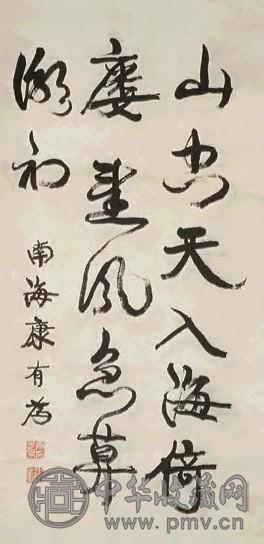 山空天入海倚
廔望風急莫
潮初
南海康有為
中华收藏网
www.pmv.cn